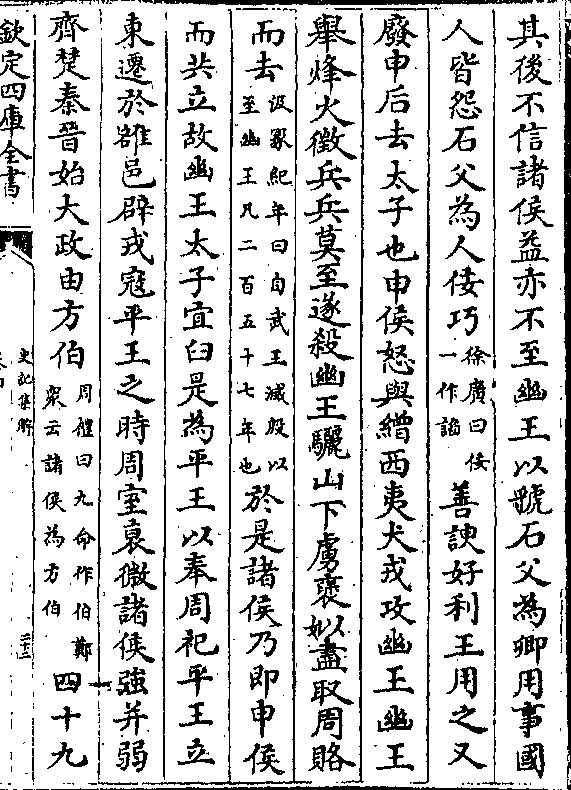 其後不信諸侯益亦不至幽王以虢石父為卿用事國
人皆怨石父為人佞巧徐廣曰佞一作諂善諛好利王用之又
廢申后去太子也申侯怒與繒西夷犬戎攻幽王幽王
舉烽火徵兵兵莫至遂殺幽王驪山下虜褒姒盡取周賂
而去汲冢紀年曰自武王滅殷以至幽王凡二百五十七年也於是諸侯乃即申侯
而共立故幽王太子宜臼是為平王以奉周祀平王立
東遷於雒邑辟戎寇平王之時周室衰微諸侯強并弱
齊楚秦晉始大政由方伯周禮曰九命作伯鄭衆云諸侯為方伯四十九
欽定四庫全書
史記集解
二十三